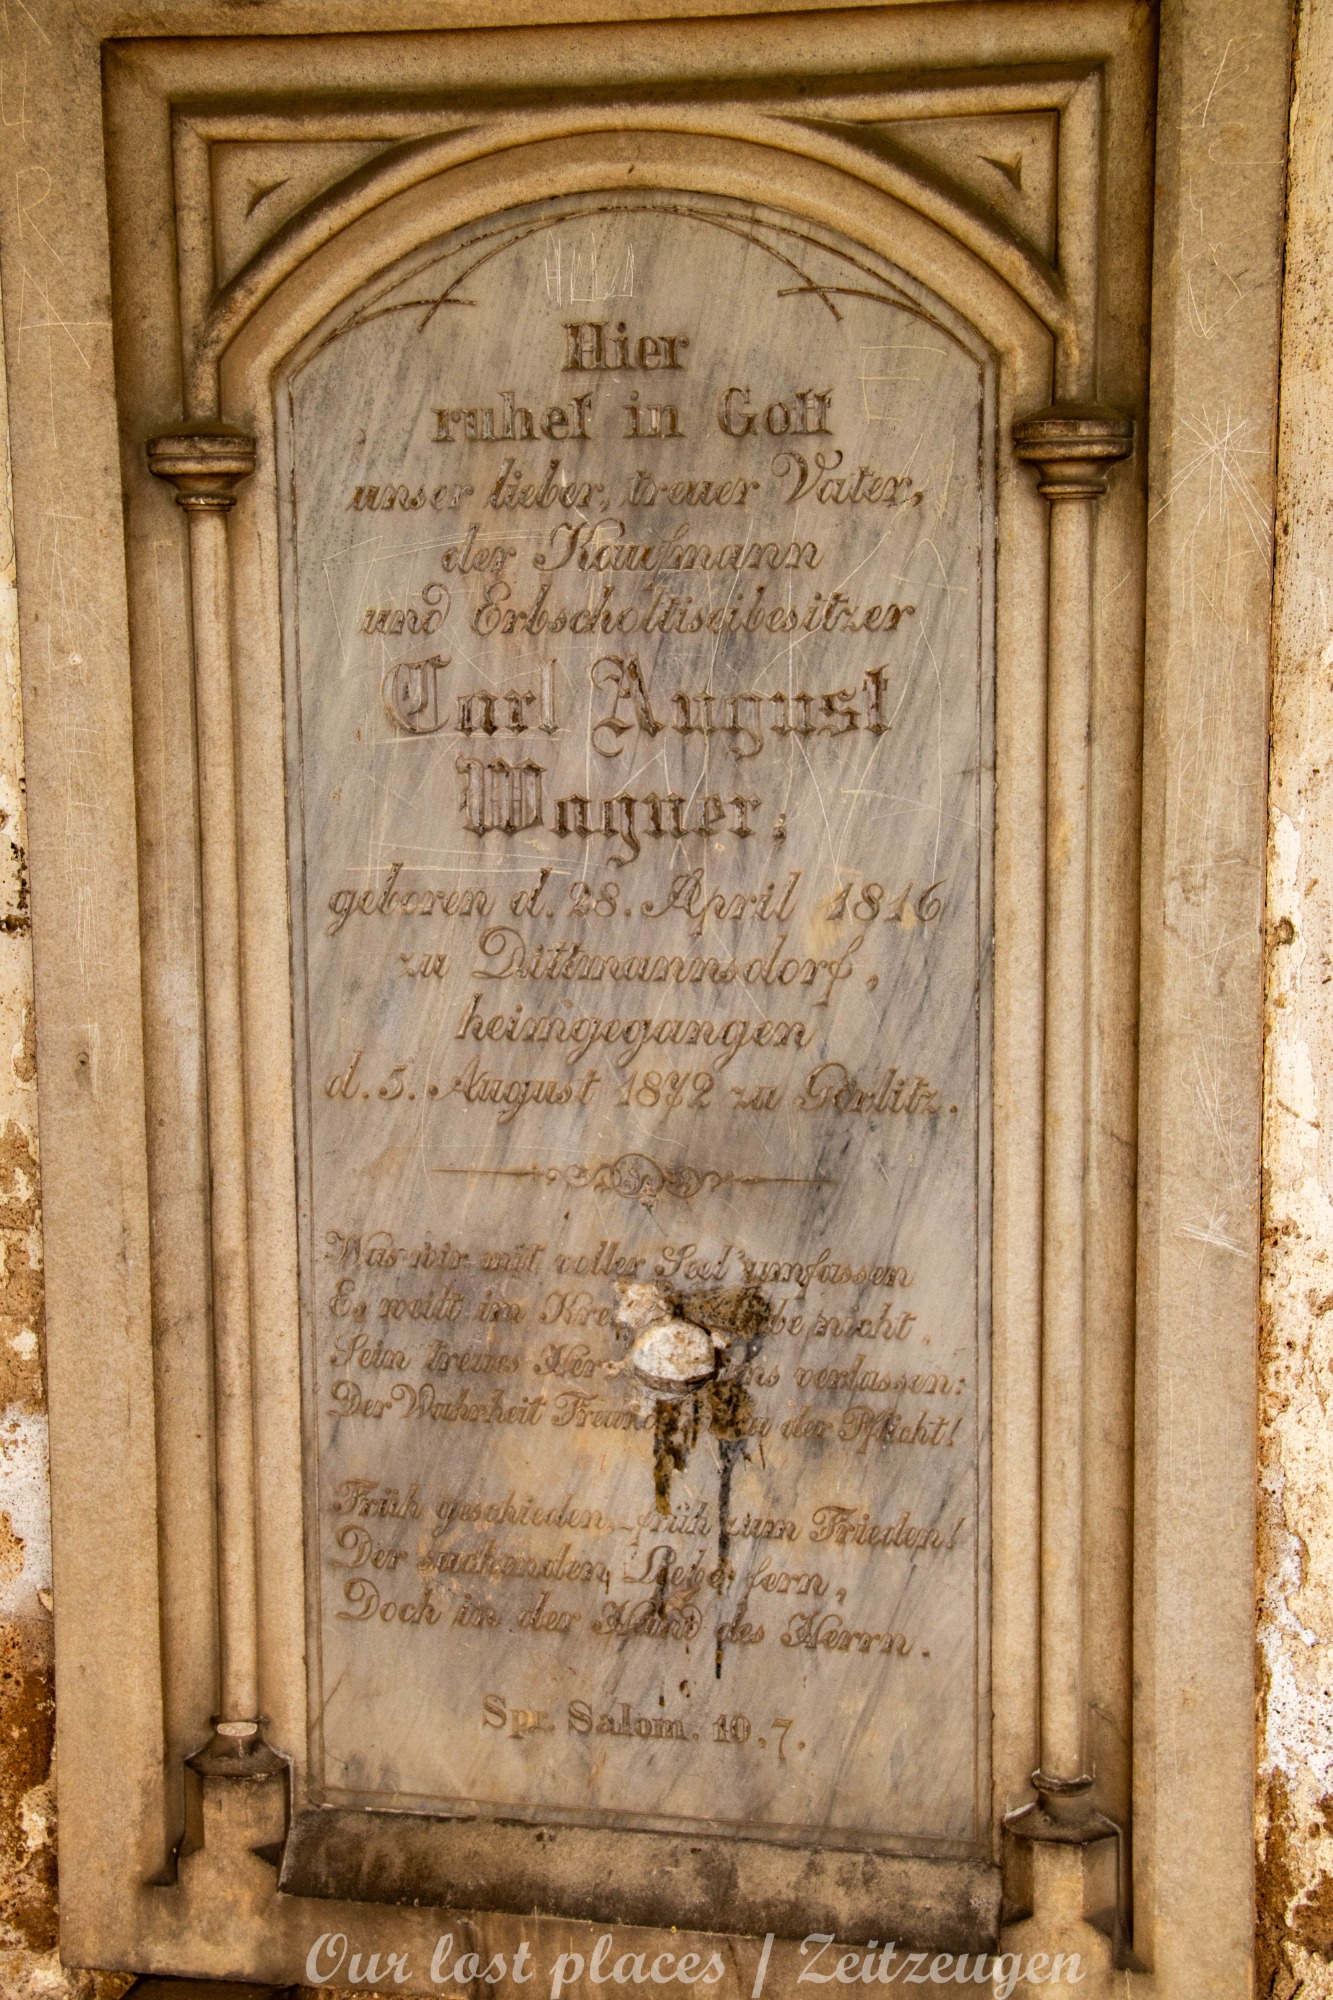 Hier
ruhet in Gott
unser lieber, treuer Vater,
der Kaufmann
und Erbscholtiseibesitzer
Carl August
Wagner,
geboren d. 28. April 1816
zu Dittmannsdorf,
heimgegangen
d. 5. August 1872 zu Görlitz.
Was wir mit voller Seel' umfassen
Es weilt im nicht,
Sein treues verlassen:
Der Wahrheit Freund der Pflicht!
Früh geschieden, früh zum Frieden!
Der suchenden Liebe fern,
Doch in der Hand des Herrn.
Spr. Salom. 10.7.
Our lost places / Zeitzeugen